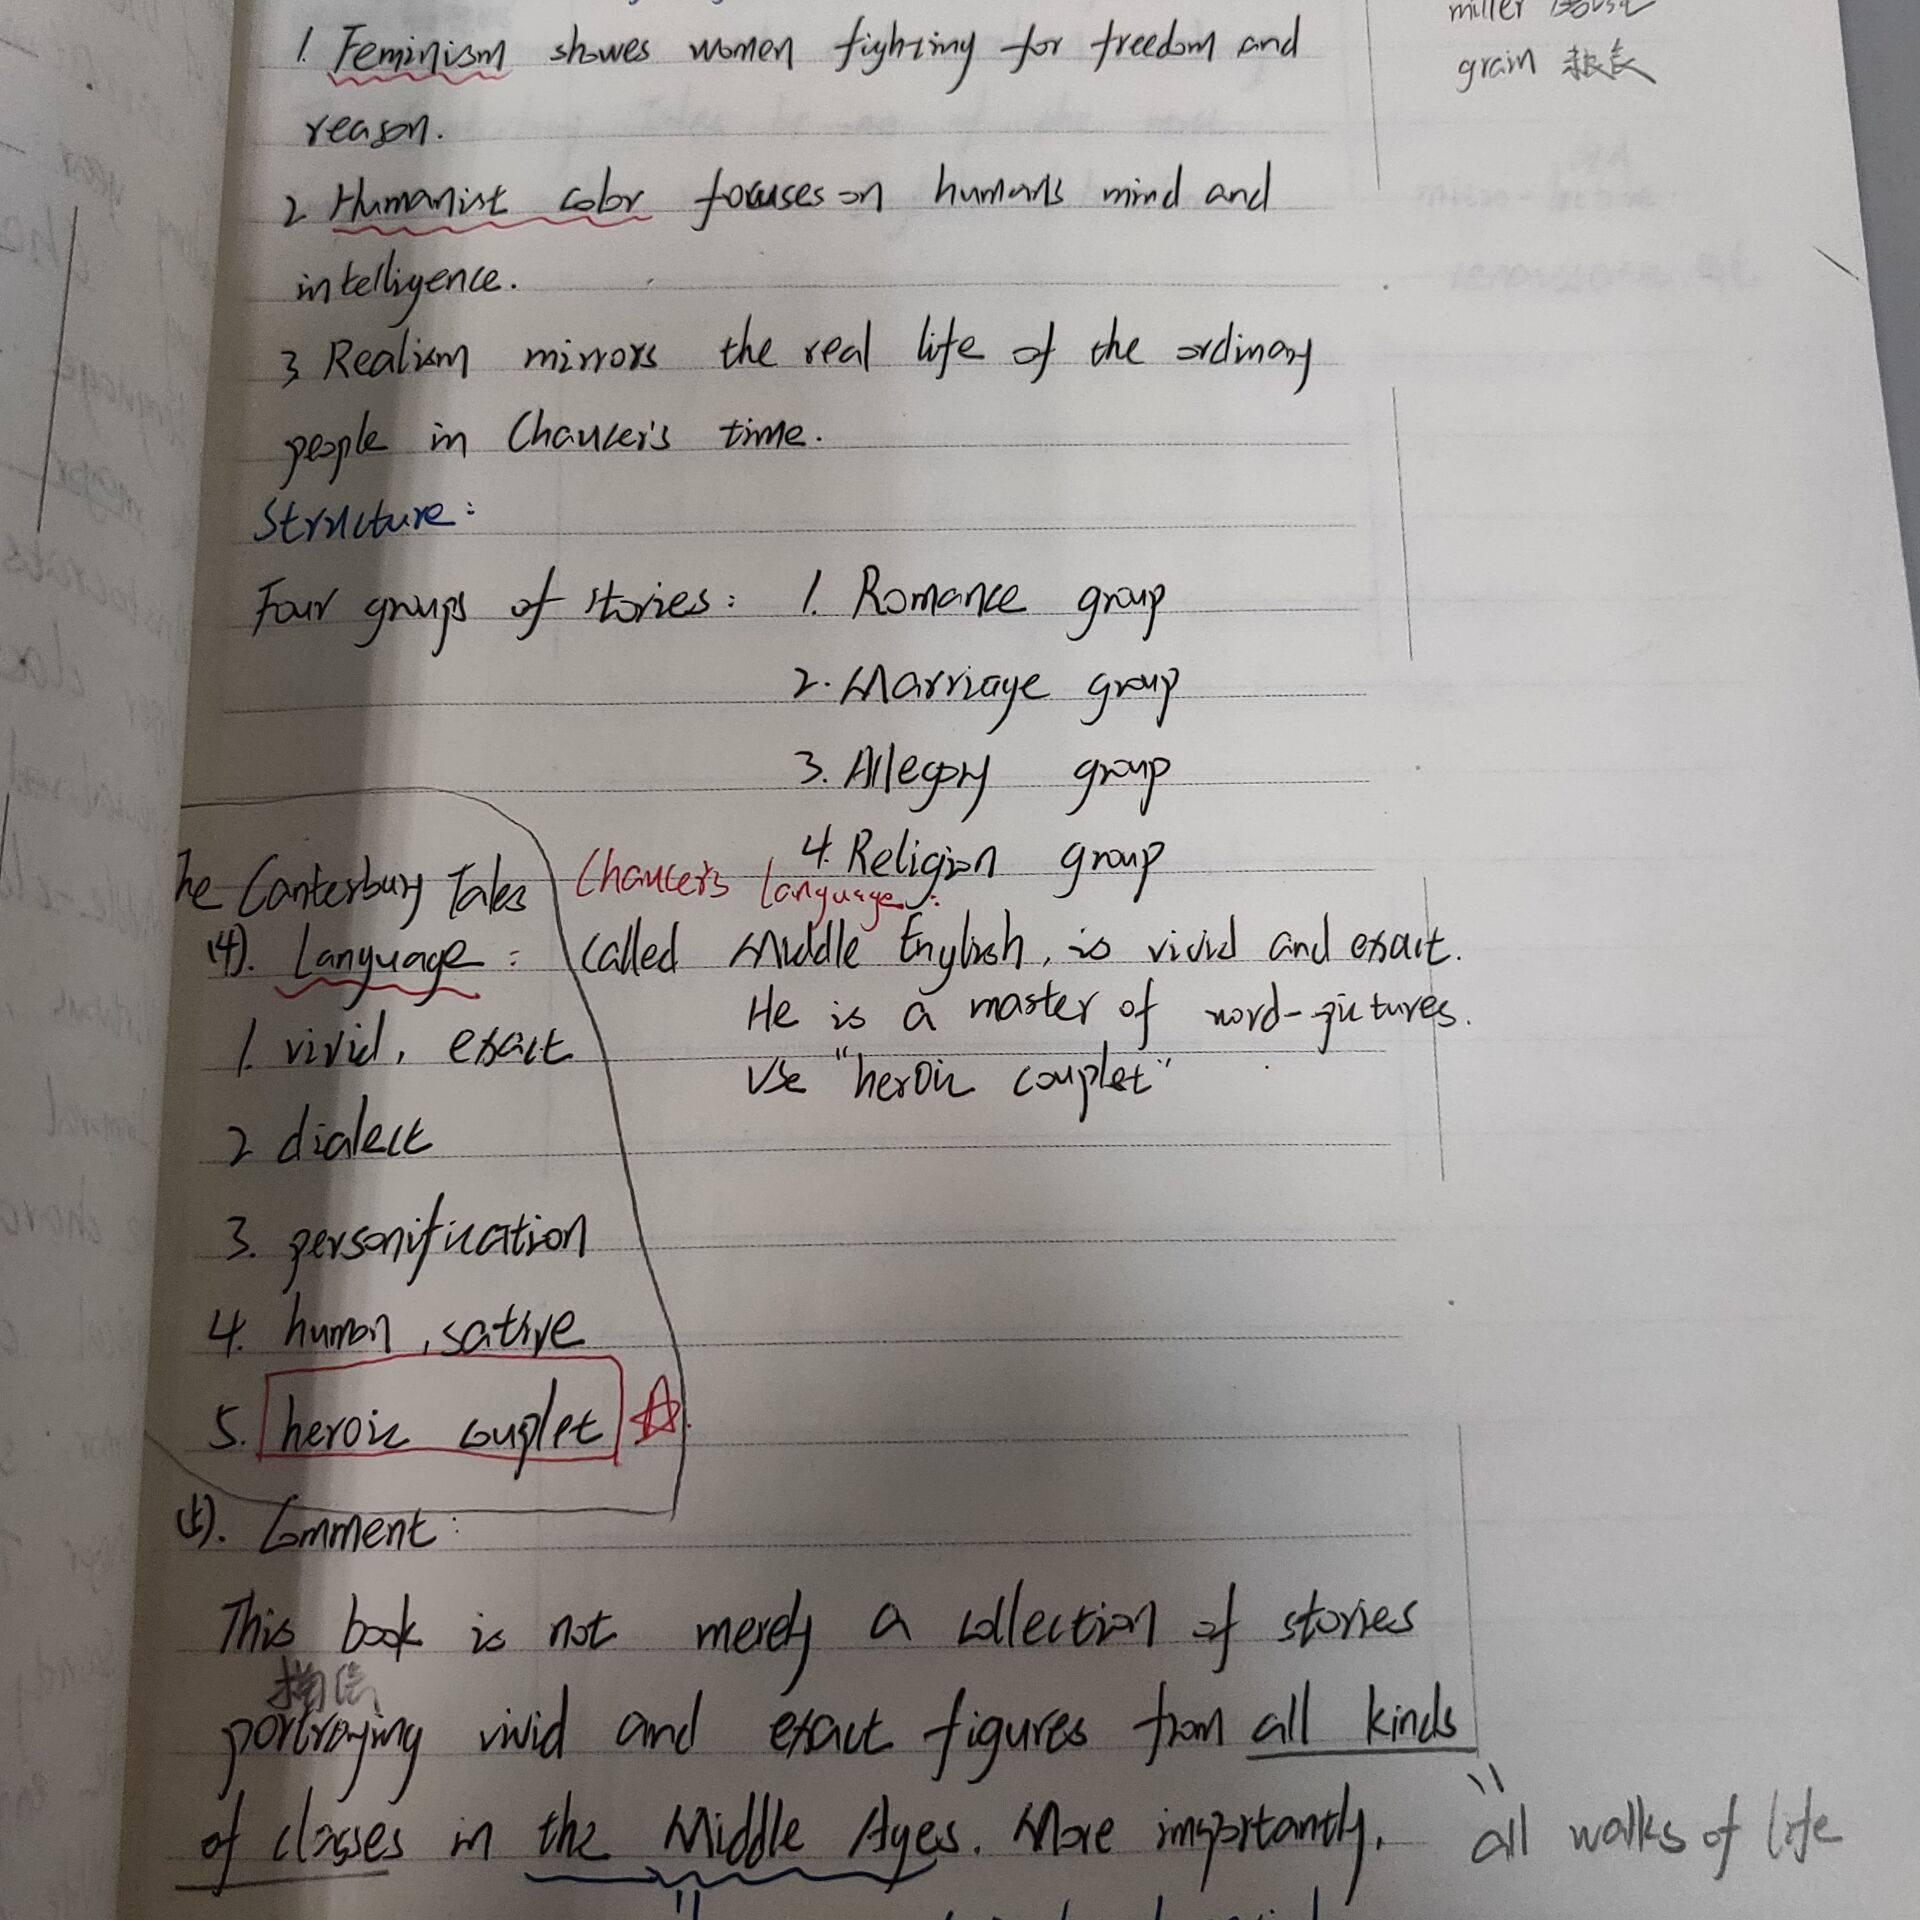 miller
grain
1. Feminism showes women fighting for freedom and
reason.
2 Humanist color focuses on human's mind and
intelligence.
3 Realism mirrors the real life of the ordinary
people in Chaucer's time.
Structure:
Four groups of stories: 1. Romance group
2. Marriage group
3. Allegory group
4. Religion group
The Canterbury Tales Chaucer's language:
(4). Language: called Middle English, is vivid and exact.
He is a master of word-pictures.
1. vivid, exact
Use "heroic couplet"
2 dialect
3. personification
4. humon, sative
5. heroic couplet ☆
Comment:
This book is not merely a collection of stories
描绘
portraying vivid and exact figures from all kinds
of classes in the Middle Ages. More importantly,
all walks of life